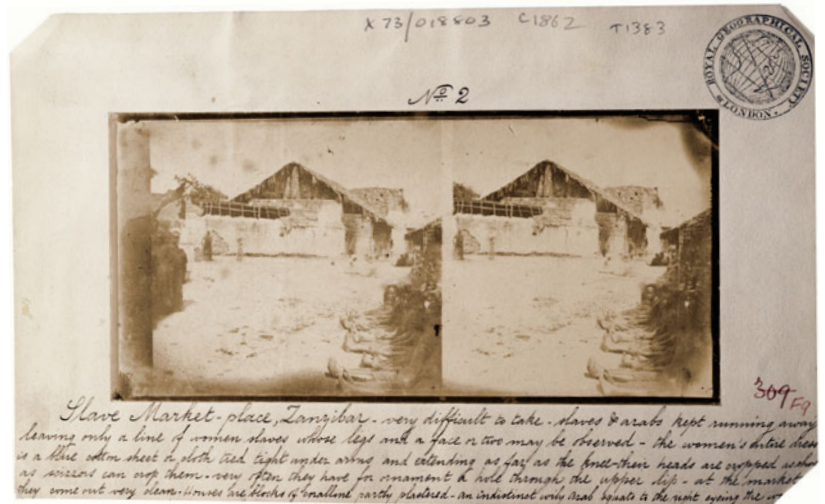 X 73/018803 C1862 T1383
ROYAL GEOGRAPHICAL SOCIETY
LONDON.
No 2
309
F9
Slave Market-place, Zanzibar - very difficult to take - slaves & arabs kept running away
leaving only a line of women slaves whose legs and a face or two may be observed - the women's entire dress
is a blue cotton sheet or cloth tied tight under arms and extending as far as the knee - their heads are cropped as close
as scissors can crop them - very often they have for ornament a hole through the upper lip - at the market
they come out very clean - Houses are blocks of coralline partly plastered - an indistinct only Arab to the right eyeing the